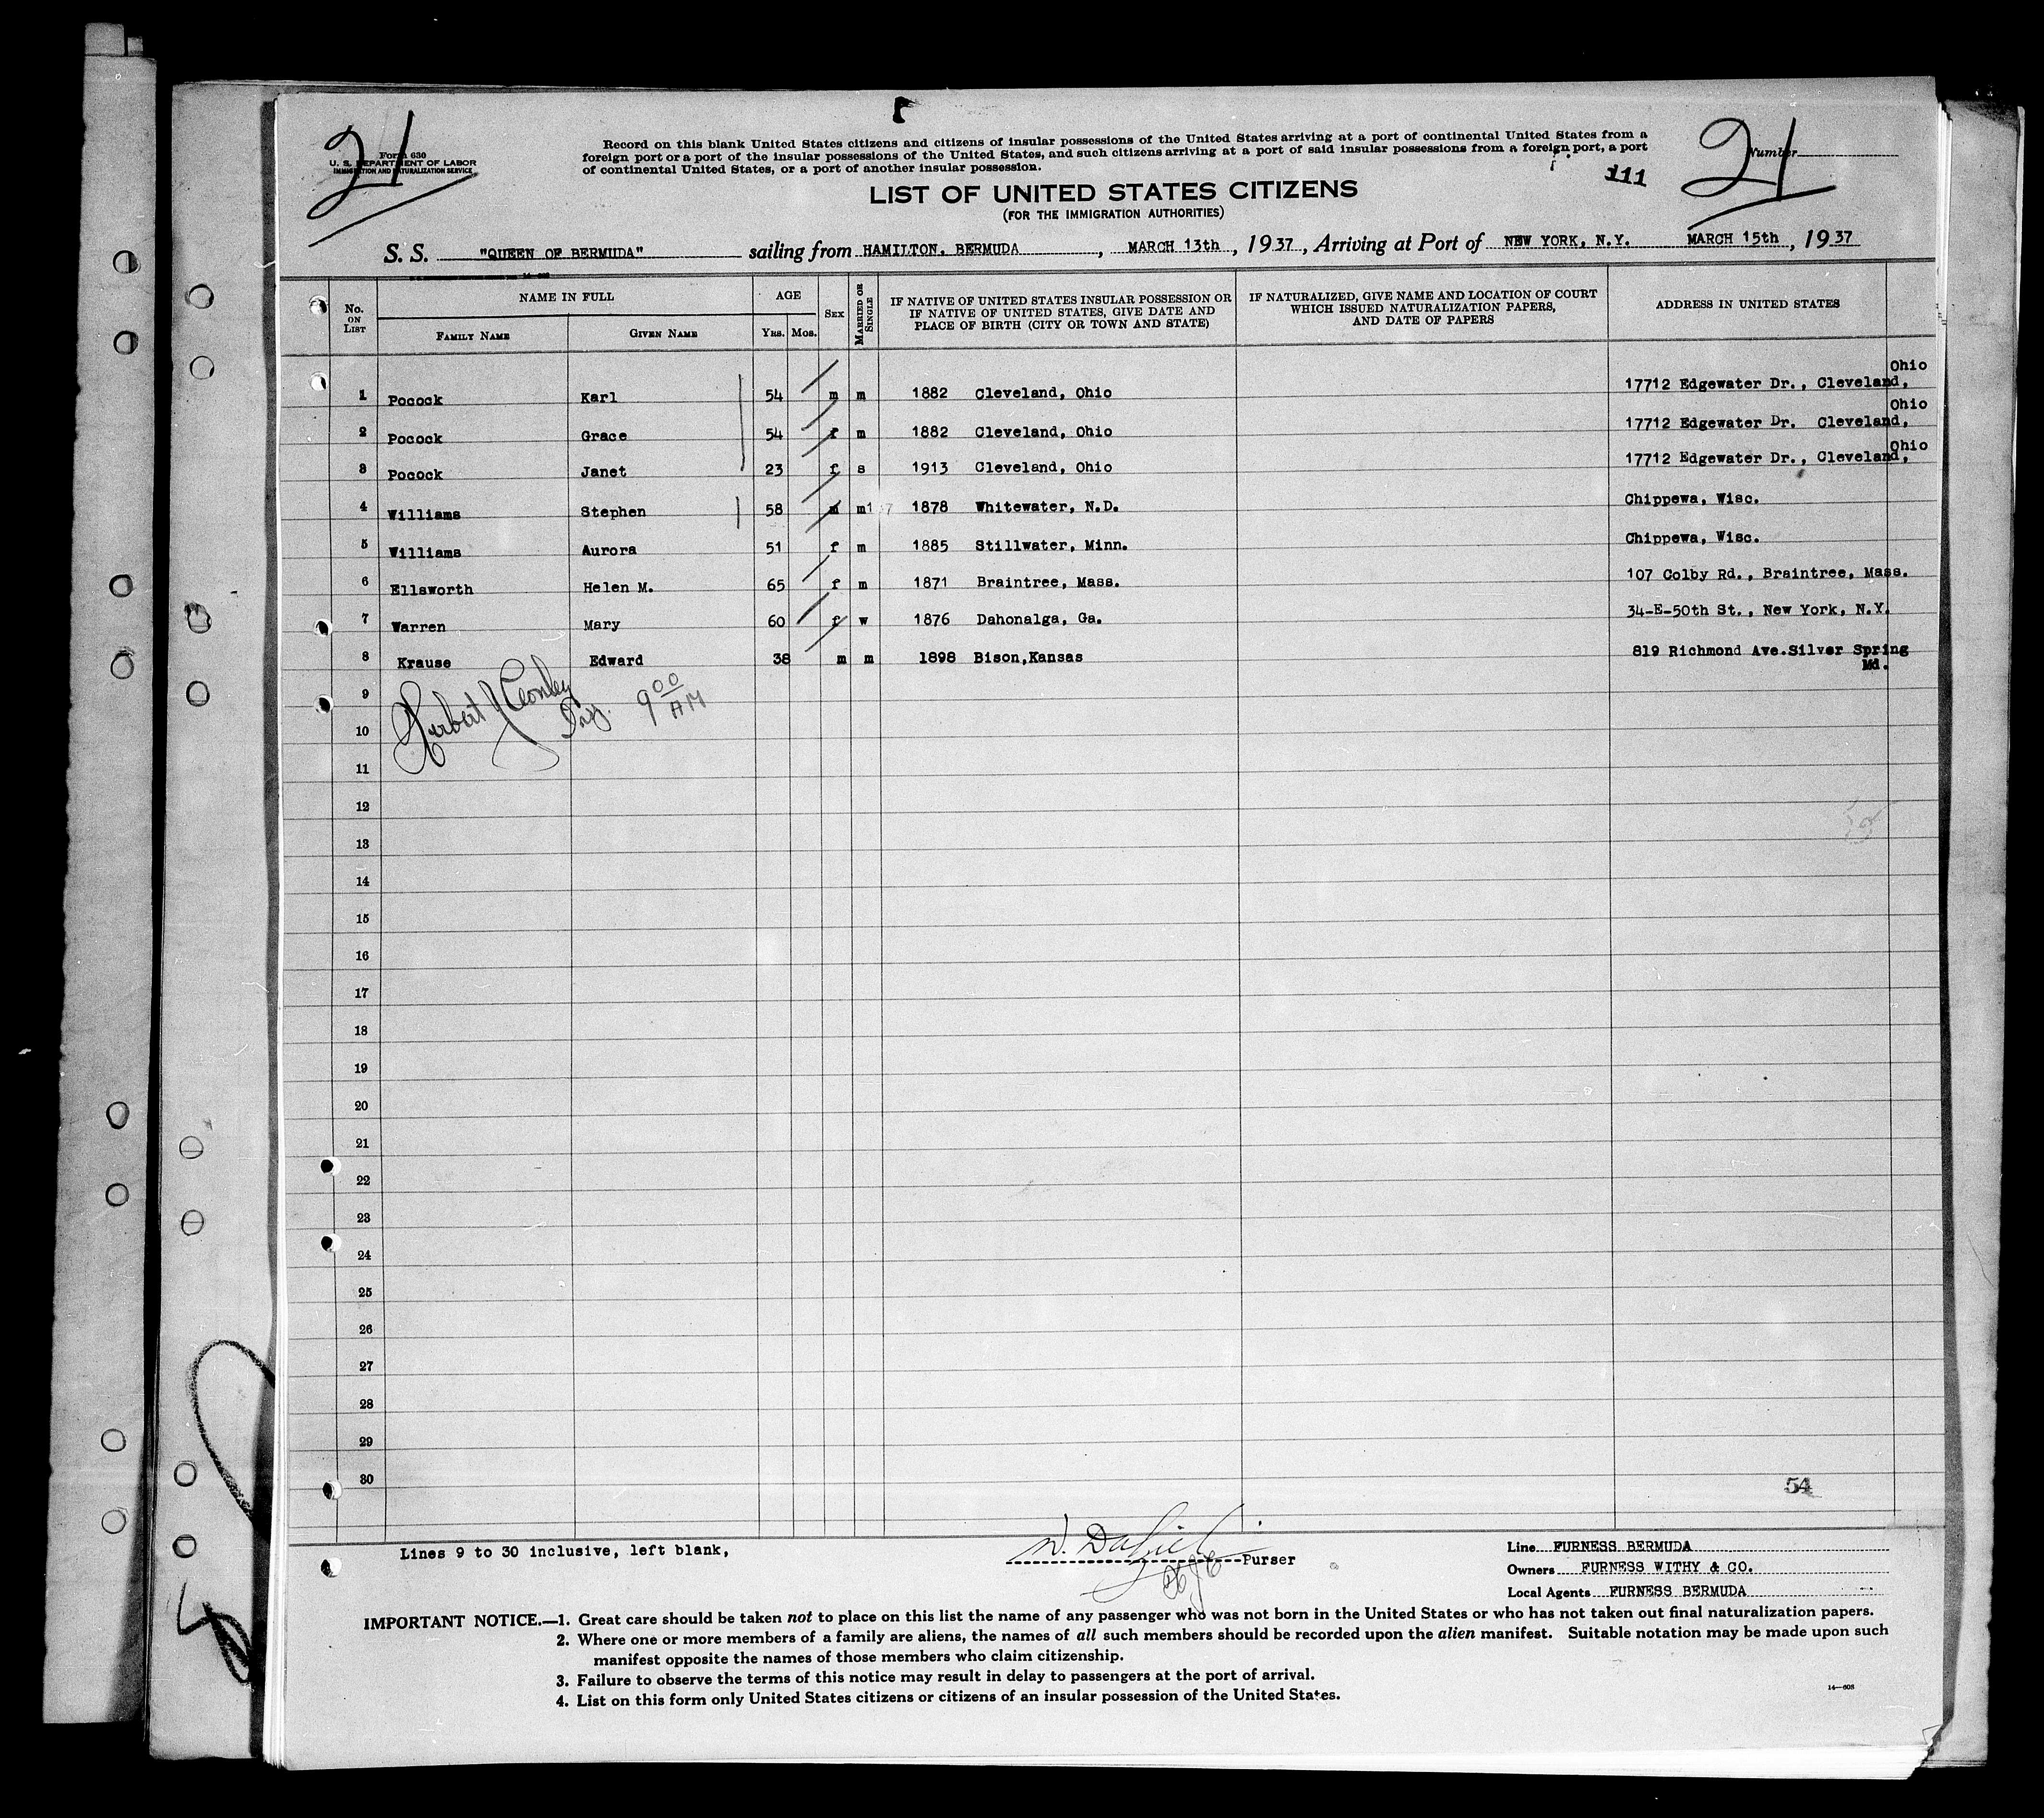 21
21
Form 630
U. S. DEPARTMENT OF LABOR
IMMIGRATION AND NATURALIZATION SERVICE
Record on this blank United States citizens and citizens of insular possessions of the United States arriving at a port of continental United States from a
foreign port or a port of the insular possessions of the United States, and such citizens arriving at a port of said insular possessions from a foreign port, a port
of continental United States, or a port of another insular possession.
Number
111
LIST OF UNITED STATES CITIZENS
(FOR THE IMMIGRATION AUTHORITIES)
S. S. "QUEEN OF BERMUDA" sailing from HAMILTON, BERMUDA, MARCH 13th, 1937, Arriving at Port of NEW YORK, N.Y. MARCH 15th, 1937
No. ON LIST NAME IN FULL AGE SEX MARRIED OR SINGLE IF NATIVE OF UNITED STATES INSULAR POSSESSION OR IF NATIVE OF UNITED STATES, GIVE DATE AND PLACE OF BIRTH (CITY OR TOWN AND STATE) IF NATURALIZED, GIVE NAME AND LOCATION OF COURT WHICH ISSUED NATURALIZATION PAPERS, AND DATE OF PAPERS ADDRESS IN UNITED STATES
FAMILY NAME GIVEN NAME YRS. MOS.
1 Pocock Karl 54 m m 1882 Cleveland, Ohio 17712 Edgewater Dr., Cleveland, Ohio
2 Pocock Grace 54 f m 1882 Cleveland, Ohio 17712 Edgewater Dr. Cleveland, Ohio
3 Pocock Janet 23 f s 1913 Cleveland, Ohio 17712 Edgewater Dr., Cleveland, Ohio
4 Williams Stephen 58 m m 1878 Whitewater, N.D. Chippewa, Wisc.
5 Williams Aurora 51 f m 1885 Stillwater, Minn. Chippewa, Wisc.
6 Ellsworth Helen M. 65 f m 1871 Braintree, Mass. 107 Colby Rd., Braintree, Mass.
7 Warren Mary 60 f w 1876 Dahonalga, Ga. 34-E-50th St., New York, N.Y.
8 Krause Edward 38 m m 1898 Bison,Kansas 819 Richmond Ave.Silver Spring Md.
9
Herbert J 9 00 AM
10
11
12
13
14
15
16
17
18
19
20
21
22
23
24
25
26
27
28
29
30
54
Lines 9 to 30 inclusive, left blank,
Purser
Line FURNESS BERMUDA
Owners FURNESS WITHY & CO.
Local Agents FURNESS BERMUDA
IMPORTANT NOTICE.—1. Great care should be taken not to place on this list the name of any passenger who was not born in the United States or who has not taken out final naturalization papers.
2. Where one or more members of a family are aliens, the names of all such members should be recorded upon the alien manifest. Suitable notation may be made upon such
manifest opposite the names of those members who claim citizenship.
3. Failure to observe the terms of this notice may result in delay to passengers at the port of arrival.
4. List on this form only United States citizens or citizens of an insular possession of the United States.
14—608